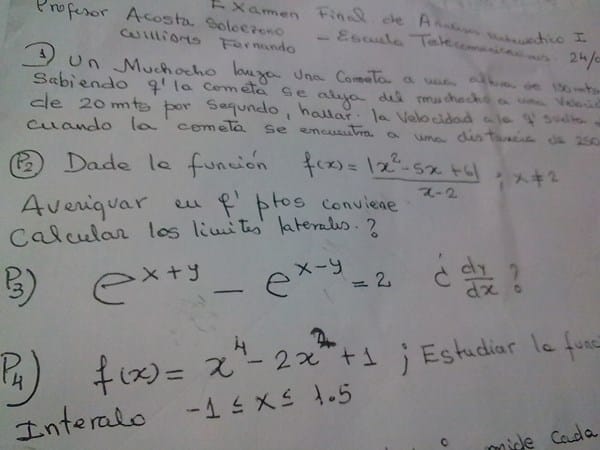 Profesor Acosta Solorzono
Examen Final de Analisis Matematico I
Williams Fernando - Escuela Telecomunicaciones 24/
1) Un Muchacho lanza una Cometa a una altura de 150 mts
Sabiendo q' la cometa se aleja del muchacho a una Veloci
de 20 mts por segundo, hallar la Velocidad a la q' suelta
cuando la cometa se encuentra a una distancia de 250
P2) Dade la función f(x) = |x² - 5x + 6| / x - 2 ; x ≠ 2
Averiguar en q' ptos conviene
Calcular los limites laterales ?
P3) e^(x+y) - e^(x-y) = 2 ¿ dy/dx ?
P4) f(x) = x⁴ - 2x² + 1 ; Estudiar la func
Interalo -1 ≤ x ≤ 1.5
mide cada